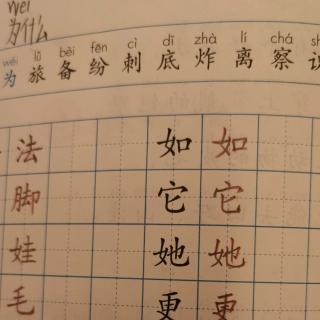 wei
为什么
wéi lǚ bèi fēn cì dǐ zhà lí chá
为 旅 备 纷 刺 底 炸 离 察 识
法 如 如
脚 它 它
娃 她 她
毛 更 更